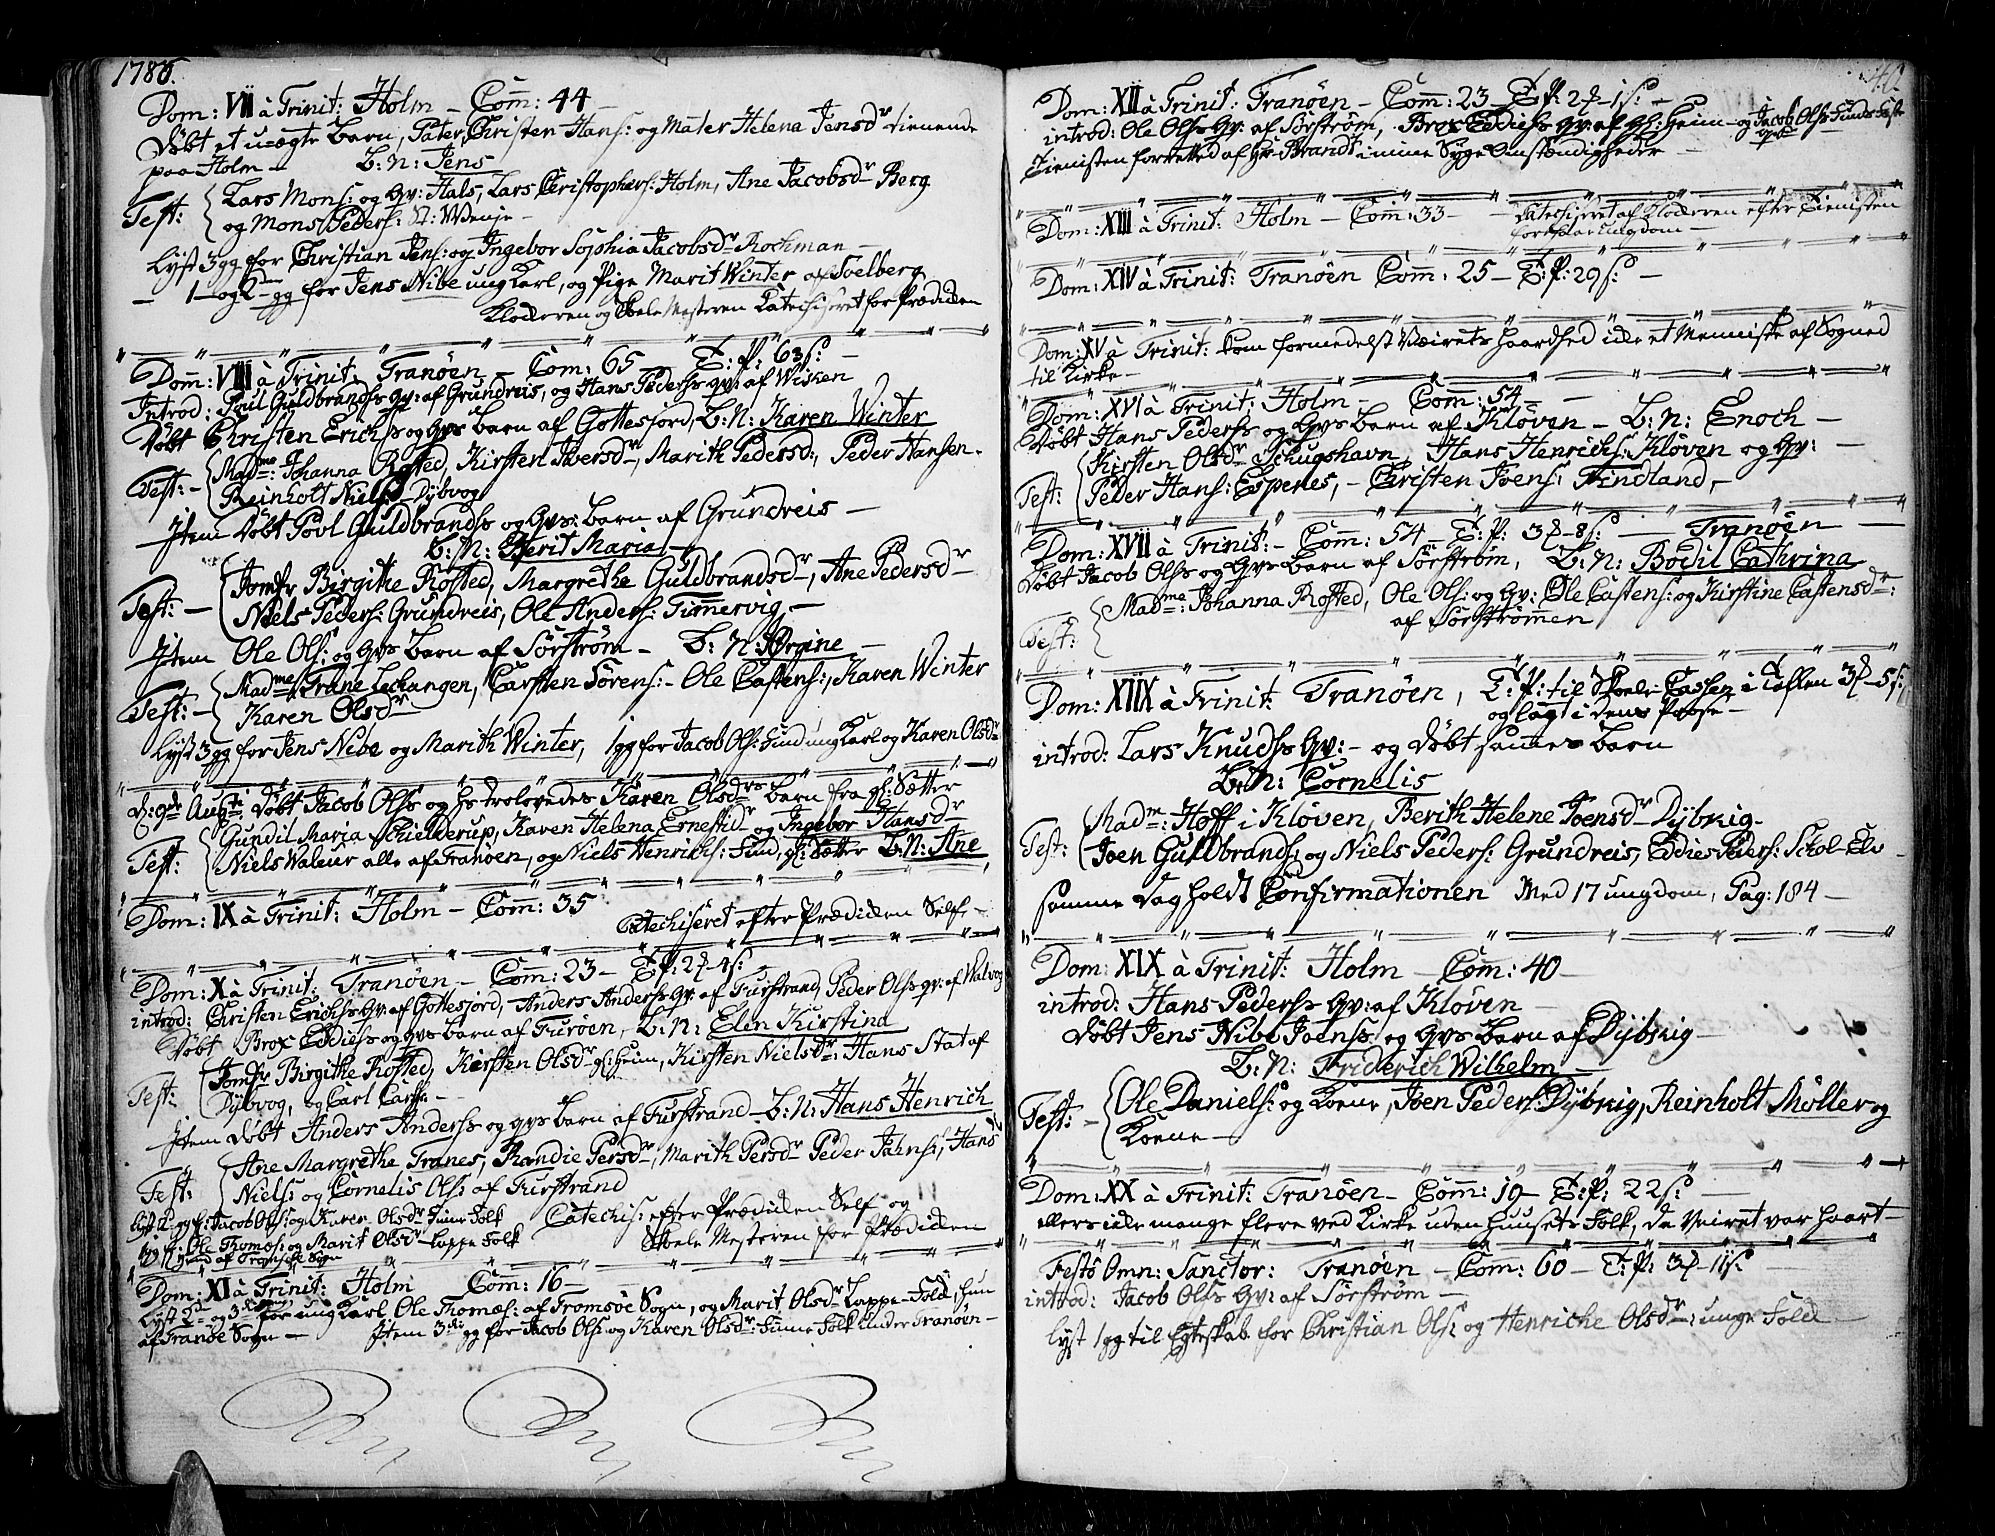 1786.
Dom: VII à Trinit: Holm – Com̄: 44 –
Döbt et u-ægte barn, Pater, Christen Hans: og Mater Helena Jensdr tienende
paa Holm – B: N: Jens
Test: Lars Mons: og Gv: Hals, Lars Christophers: Holm, Ane Jacobsdr Berg
og Mons Peders: St: Wenje –
Lyst 3 gg for Christian Jens: og Ingebor Sophia Jacobsdr Rochman –
– 1 og 2 gg for Jens Nibe ung Karl, og Pige Marit Winter af Soelberg
Klockeren og Skole Mesteren Catechiseret for Prædicken
Dom: VIII à Trinit: Tranöen – Com: 65 – T: P: 63 s: –
Introd: Poul Guldbrands Gv: af Grundreis, og Hans Peders gv: af Wisken
Döbt Christen Erichs og Gvs barn af Gottesjord, B: N: Karen Winter
Test: – Madme: Johanna Rosted, Kirsten Iversdr, Marith Pedersd:, Peder Hansen.
Reinholt Niels: Dybvog
Item Döbt Povl Guldbrands og Gvs: barn af Grundreis –
B: N: Berit Maria –
Test: – Jomfr Birgithe Rosted, Margrethe Guldbrandsdr, Ane Pedersdr
Niels Peders: Grundreis, Ole Anders: Tim̄ervig, –
Item Ole Ols: og Gvs barn af Sörström – B: N: Jörgine –
Test: – Madme Trane Lechangen, Carsten Sörens: – Ole Castens:, Karen Winter
Karen Olsdr
Lyst 3 gg for Jens Nibe og Marith Winter, 1 gg for Jacob Ols: Sund ung Karl og Karen Olsdr
d: 9de Augti: Döbt Jacob Ols og hs trolovedes Karen Olsdrs barn fra gl: Sætter
Test: Gundil Maria Schielderup, Karen Helena Ernestidr og Ingebor Hansdr
Niels Waleur alle af Tranöen, og Niels Henrichs: Sund, gl: Sætter B: N: Ane
Dom: IX à Trinit: Holm – Com̄: 35 Catechiseret efter Prædicken Self –
Dom: X à Trinit: Tranöen – Com: 23 – T: P: 2 – 4 s:
introd: Christen Erichs Gv: af Gottesjord, Anders Anders Gv: af Furstrand, Peder Ols gv: af Walvog
Döbt Brox Eddies og gvs barn af Furöen, B: N: Elen Kirstina
Test: Jomfr Birgithe Rosted, Kirsten Olsdr gl: Heim, Kirsten Nielsdr: Hans Stat af
Dybvog, og Carl Carls: –
Item Döbt Anders Anders og gvs barn af Furstrand – B: N: Hans Henrich
Test: Ane Margrethe Tranes, Randie Persdr, Marith Persdr Peder Jahns:, Hans
Niels: og Cornelis Ols: af Furstrand
Lyst 2 gg f: Jacob Ols: og Karen Olsdr Finne Folk Catechis: efter Prædicken Self og
1 gg f: Ole Thomes: og Marit Olsdr Lappe Folk Skole Mesteren for Prædicken
af Tromsöe Sogn
Dom: XI à Trinit: Holm Com: 16 –
Lyst 2den og 3die gg for ung Karl Ole Thomæs: af Tromsöe Sogn, og Marit Olsdr Lappe-Folk, hun
af Tranöe Sogn – Item 3die gg for Jacob Ols og Karen Olsdr: Finne Folk under Tranöen –
Dom: XII à Trinit: Tranöen – Com̄: 23 – T: P: 2 – 1 s: –
introd: Ole Ols Gv: af Sörström, Brox Eddies gv: af gl: Heim – og Jacob Ols Sunds Feste
Tienisten forretted af Hr Brandt i mine Syge Omstændigheder –
Dom: XIII à Trinit: Holm – Com: 33 – Catechiseret af Klockeren efter Tienisten
Dom: XIV à Trinit: Tranöen Com̄: 25 – T: P: 29 s: –
Dom: XV à Trinit: kom formedelst Væirets haardhed icke et Menniske af Sogned
til Kirke –
Dom: XVI à Trinit: Holm – Com̄: 54 –
Döbt Hans Peders og Gvs barn af Klöven – B: N: Enoch –
Test: Kirsten Olsdr Schugshavn, Hans Henrichs: Klöven og Gv: –
Peder Hans: Espenes, – Christen Joens: Findland, –
Dom: XVII à Trinit: – Com̄: 54 – T: P: 3 – 8 s: – Tranöen –
Döbt Jacob Ols og Gvs barn af Sörström, B: N: Bodil Cathrina
Test: Madme: Johanna Rosted, Ole Ols: og Gv: Ole Castens: og Kirstine Castensdr:
af Sörströmmen
Dom: XIIX à Trinit: Tranöen, T: P: til Skole-Cassen i Taflen 3 – 5 s:
og lagt i dens Posse –
introd: Lars Knuds Gv: – og Döbt sammes barn
B: N: Cornelis
Test: Madm: Hoff i Klöven, Berith Helene Joensdr Dybvig –
Joen Guldbrands: og Niels Peders: Grundreis, Eddies Peders: Skol-Elv –
samme Dag holdt Confirmationen Med 17 ungdom, Pag: 184 –
Dom: XIX à Trinit: Holm – Com̄: 40 –
introd: Hans Peders Gv: af Klöven –
Döbt Jens Nibe Joens: og Gvs barn af Dybvig –
B: N: Friderich Wilhelm –
Test: – Ole Daniels: og Kone, Joen Peders: Dybvig, Reinholt Möller og
Kone –
Dom: XX à Trinit: Tranöen – Com̄: 19 – T: P: 22 s: –
ellers icke mange flere ved Kirke uden huusets Folk, da Veiret var haart –
Festo Omn: Sanctor: Tranöen – Com: 60 – T: P: 3 – 11 s: –
introd: Jacob Ols Gv: af Sörström –
Lyst 1 gg til Egteskab for Christian Ols: og Henriche Olsdr: unge Folk –